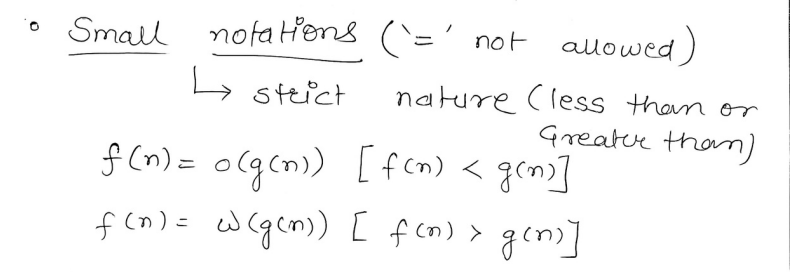 • Small notations ('=' not allowed)
↳ strict nature (less than or
Greater than)
f(n) = o(g(n)) [f(n) < g(n)]
f(n) = ω(g(n)) [f(n) > g(n)]